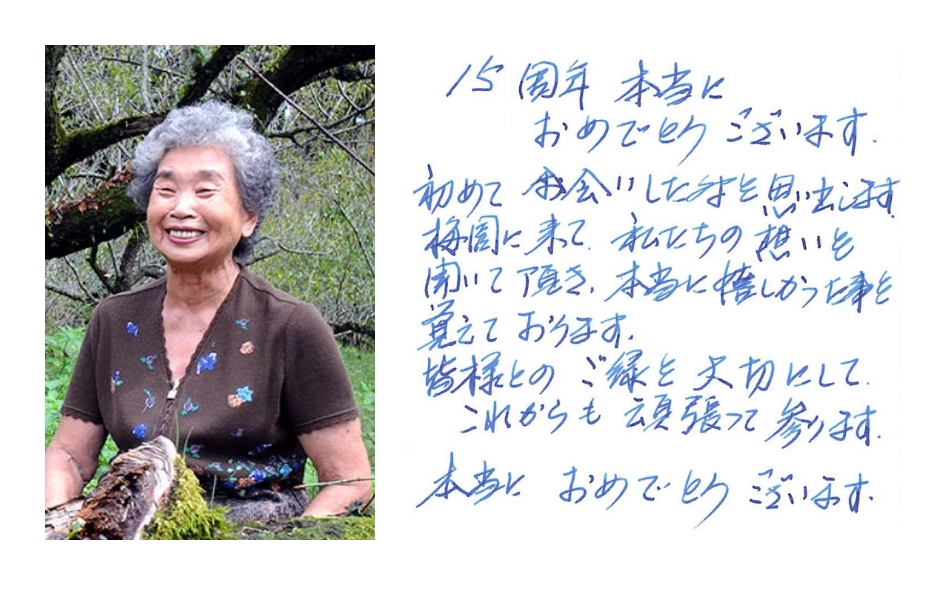 15周年 本当に
おめでとうございます.
初めて お会いした時を思い出します
梅園に来て. 私たちの想いを
聞いて頂き. 本当に嬉しかった事を
覚えております.
皆様との ご縁を大切にして.
これからも 頑張って参ります.
本当に おめでとうございます.